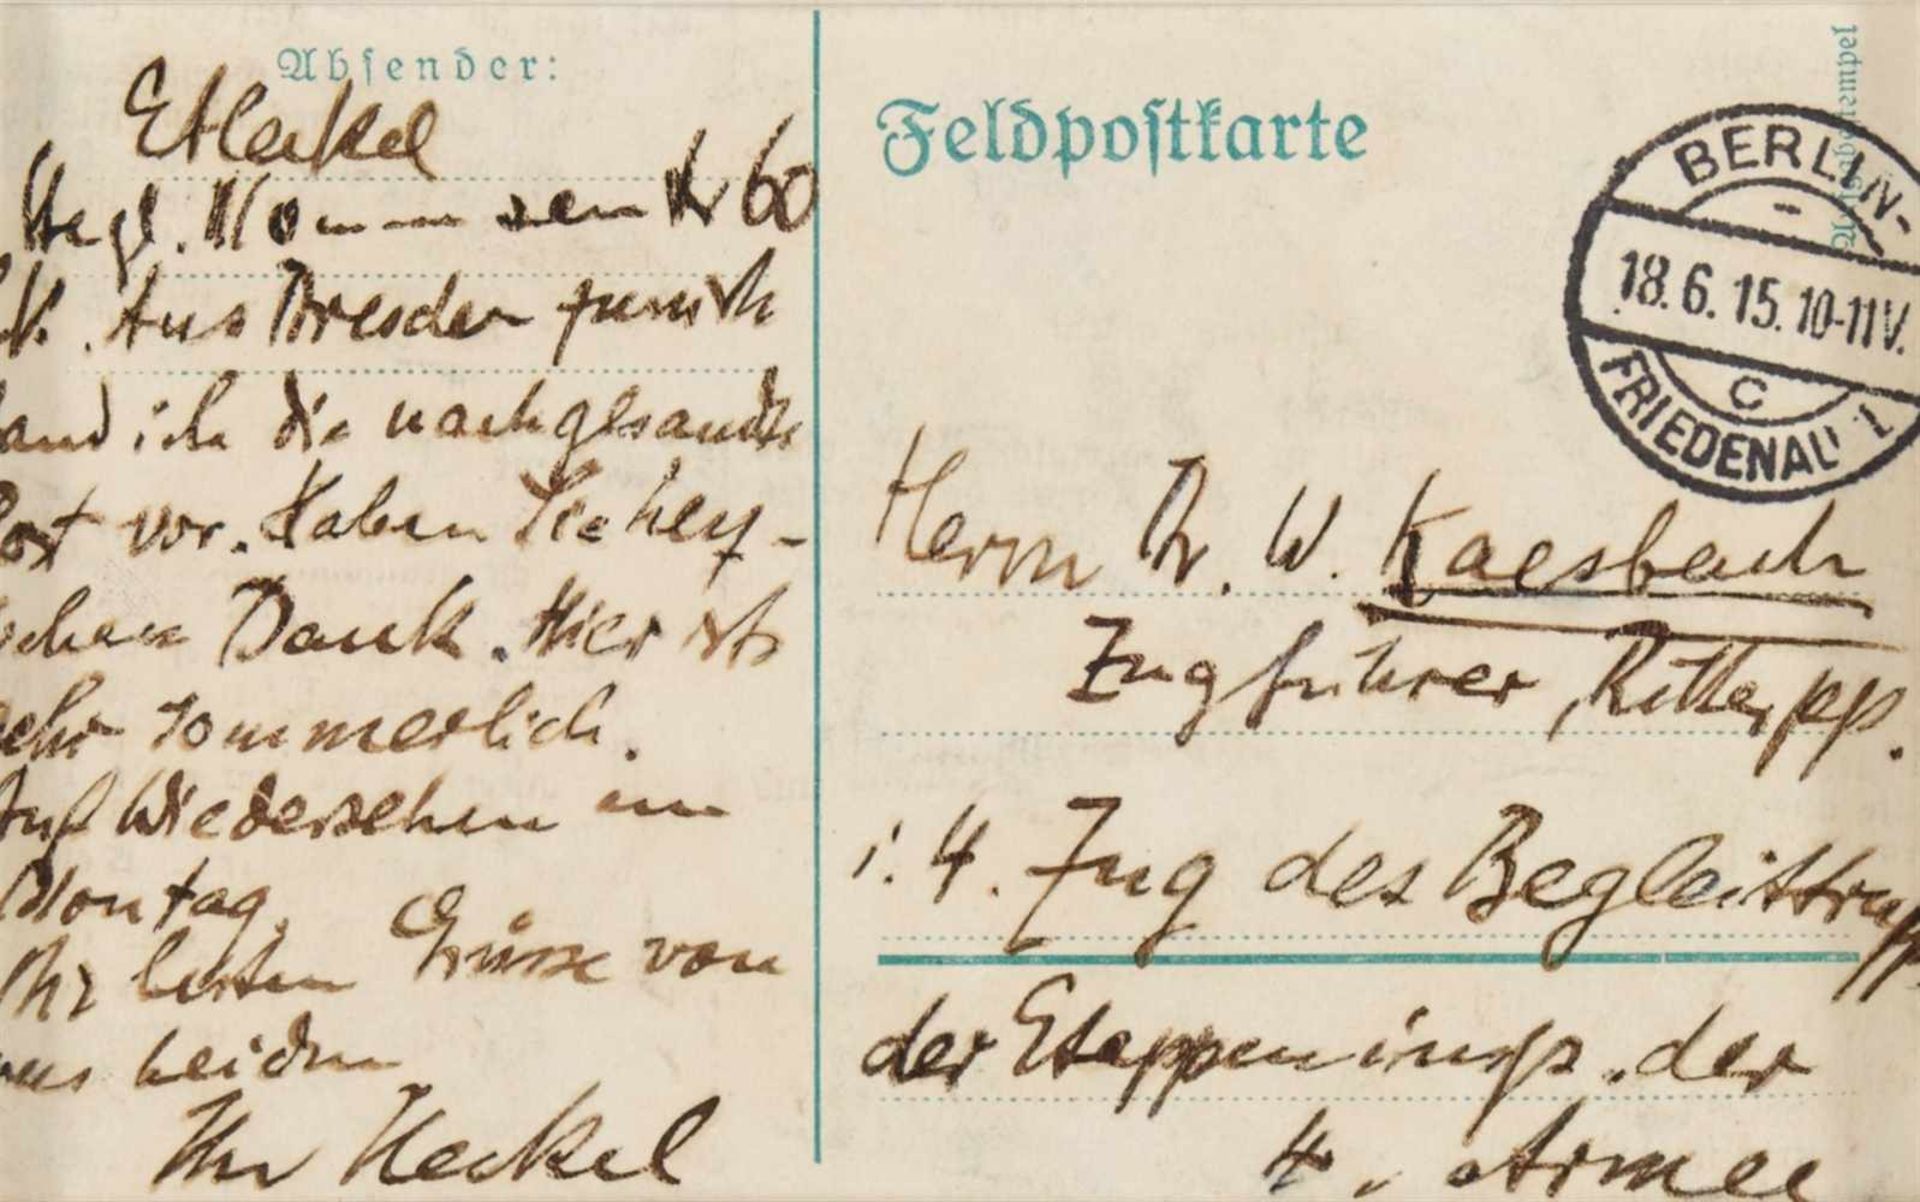 Absender:
EHeckel
Stegl. Mommsen str 60
L. K. Aus Dresden zurück
fand ich die nachgesandte
Post vor. Haben Sie herz-
lichen Dank. Hier ists
sehr sommerlich.
Auf Wiedersehen am
Montag.
Ihr besten Grüsse von
uns beiden
Ihr Heckel
Feldpostkarte
BERLIN-
18.6.15.10-11V.
C
FRIEDENAU 1
Herrn Dr. W. Kaesbach
Zugführer, Ritter pp.
i. 4. Zug des Begleittrupp
der Etappeninsp. der
4. Armee